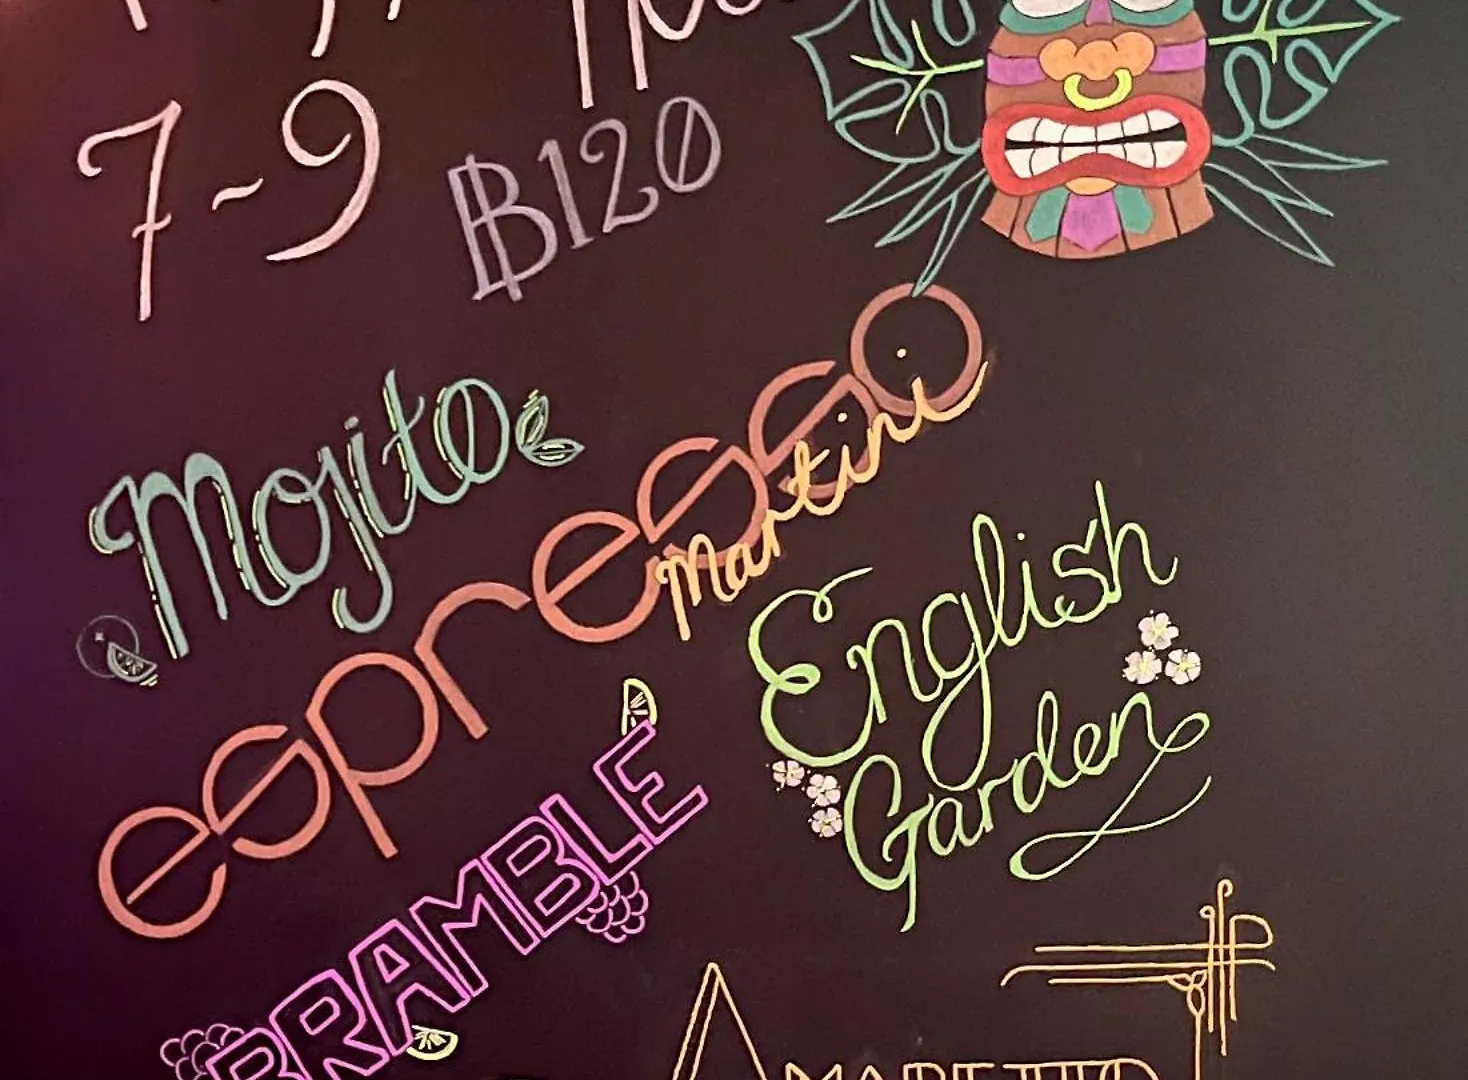 7-9
฿120
Mojito
espresso
Martini
English
Garden
BRAMBLE
AMARETTO